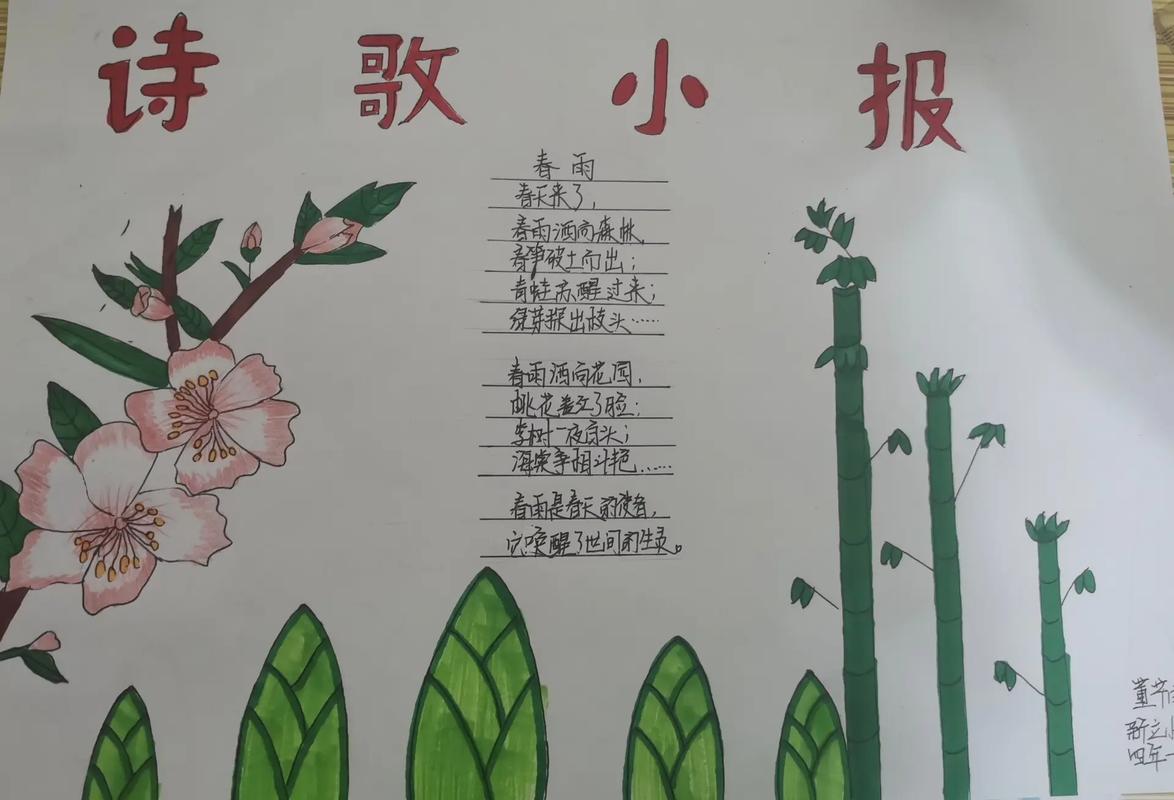 诗歌小报
春雨
春天来了，
春雨洒向森林，
春笋破土而出；
青蛙苏醒过来；
绿芽探出枝头……
春雨洒向花园，
桃花羞红了脸；
李树一夜白头；
海棠争相斗艳……
春雨是春天的使者，
它唤醒了世间的生灵。
董节
新立小
四年一